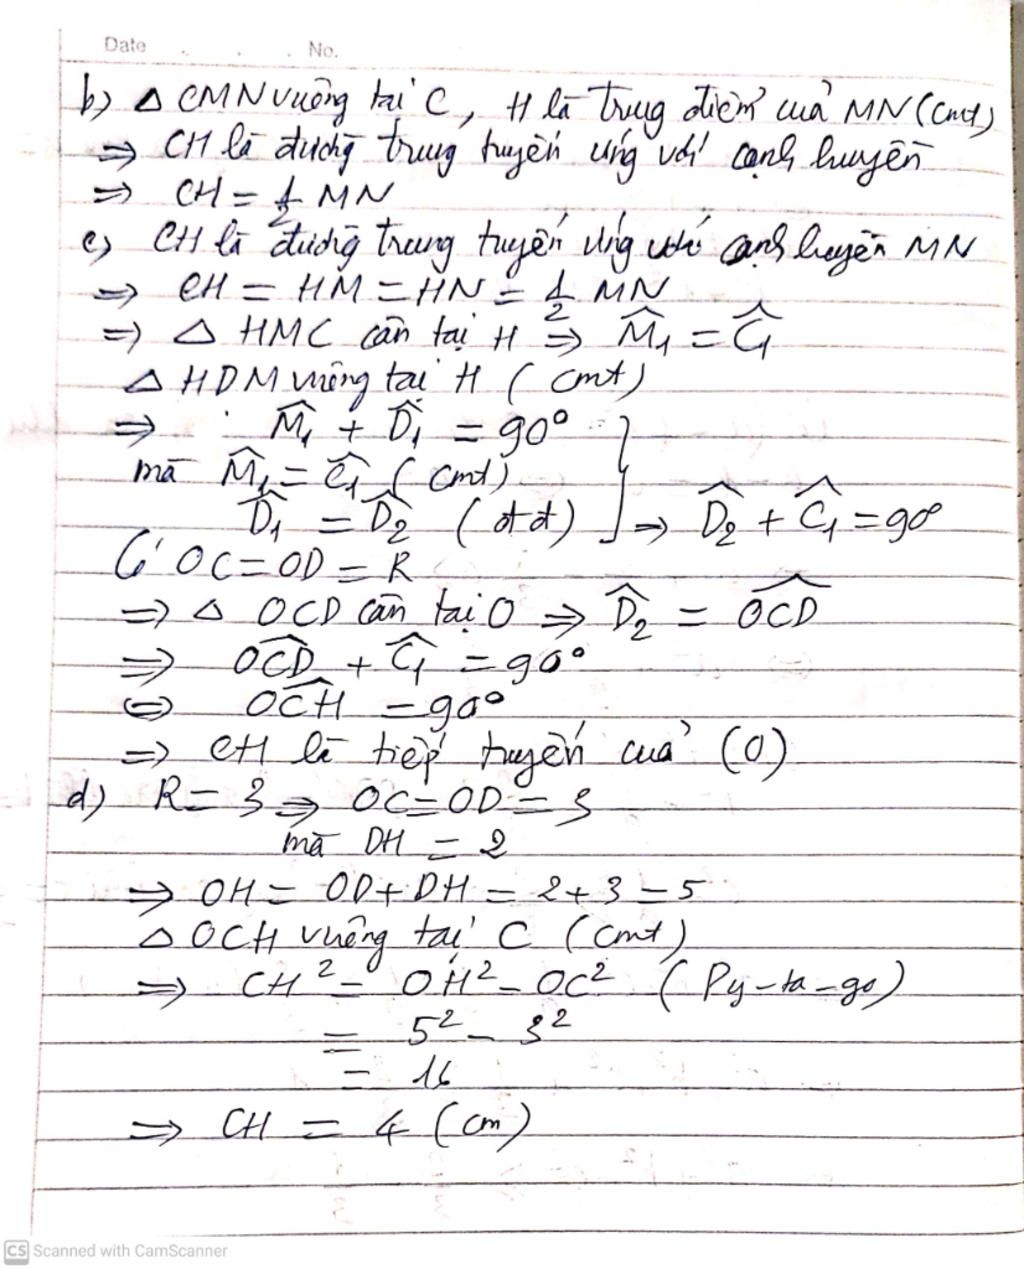 Date . . . No.
b) △ CMN vuông tại C, H là trung điểm của MN (cmt)
=> CH là đường trung tuyến ứng với cạnh huyền
=> CH = 1/2 MN
c) CH là đường trung tuyến ứng với cạnh huyền MN
=> CH = HM = HN = 1/2 MN
=> △ HMC cân tại H => M̂₁ = Ĉ₁
△ HDM vuông tại H (cmt)
=> M̂₁ + D̂₁ = 90°
mà M̂₁ = Ĉ₁ (cmt)
D̂₁ = D̂₂ (đđ) } => D̂₂ + Ĉ₁ = 90°
Có OC = OD = R
=> △ OCD cân tại O => D̂₂ = OĈD
=> OĈD + Ĉ₁ = 90°
<=> OĈH = 90°
=> CH là tiếp tuyến của (O)
d) R = 3 => OC = OD = 3
mà DH = 2
=> OH = OD + DH = 2 + 3 = 5
△ OCH vuông tại C (cmt)
=> CH² = OH² - OC² (Py-ta-go)
= 5² - 3²
= 16
=> CH = 4 (cm)
CS Scanned with CamScanner